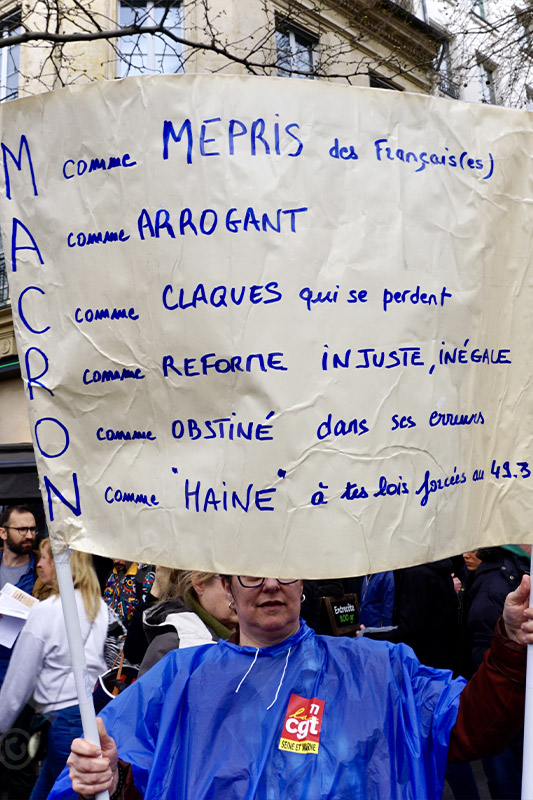 M comme MEPRIS des Français(es)
A comme ARROGANT
C comme CLAQUES qui se perdent
R comme REFORME INJUSTE, INÉGALE
O comme OBSTINÉ dans ses erreurs
N comme "HAINE" à tes lois forcées au 49.3
Entrecôte
800 gr
77
La
cgt
SEINE ET MARNE